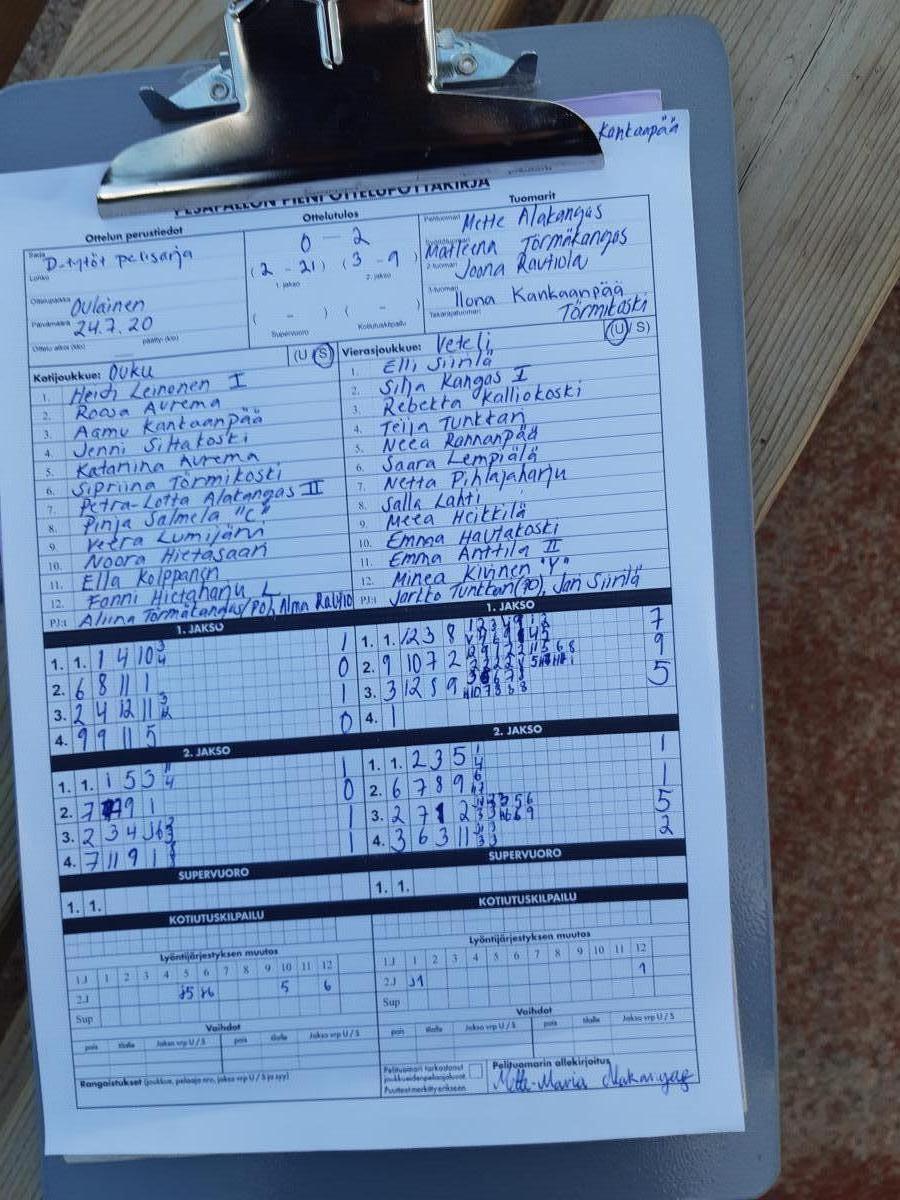 Kankaanpää
PESÄPALLON PIENI OTTELUPÖYTÄKIRJA
Ottelun perustiedot
Sarja D-tytöt pelisarja
Lohko
Ottelupaikka Oulainen
Päivämäärä 24.7.20
Ottelu alkoi (klo) päättyi (klo)
Ottelutulos
0 - 2
(2 - 21) (3 - 9)
1. jakso 2. jakso
( - ) ( - )
Supervuoro Kotiutuskilpailu
Tuomarit
Pelituomari Mette Alakangas
Matleena Törmäkangas
2-tuomari Joona Rautiola
3-tuomari
Ilona Kankaanpää
Takarajatuomari Törmikoski
Kotijoukkue: Ouku (U / S)
1. Heidi Leinonen I
2. Roosa Aurema
3. Aamu Kankaanpää
4. Jenni Siltakoski
5. Katariina Aurema
6. Sipriina Törmikoski
7. Petra-Lotta Alakangas II
8. Pinja Salmela "C"
9. Veera Lumijärvi
10. Noora Hietasaari
11. Ella Kolppanen
12. Fanni Hietaharju L
PJ:t Aliina Törmäkangas/PöJ, Alma Rautio
Vierasjoukkue: Veteli (U / S)
1. Elli Siirilä
2. Silja Kangas I
3. Rebekka Kalliokoski
4. Teija Tunkkari
5. Neea Rannanpää
6. Saara Lempiälä
7. Netta Pihlajaharju
8. Salla Lahti
9. Meea Heikkilä
10. Emma Hautakoski
11. Emma Anttila II
12. Minea Kivinen "V"
PJ:t Jarkko Tunkkari (PJ), Jari Siirilä
1. JAKSO
1. 1. 1 4 10 3 4 1
2. 6 8 11 1 0
3. 2 4 12 11 3 12 1
4. 9 9 11 5 0
1. JAKSO
1. 1. 12 3 8 7
2. 9 10 7 2 9
3. 3 12 8 9 5
4. 1
2. JAKSO
1. 1. 1 5 3 4 1
2. 7 9 1 0
3. 2 3 4 1
4. 7 11 9 1 1
2. JAKSO
1. 1. 2 3 5 1 4 1
2. 6 7 8 9 1
3. 2 7 1 2 5
4. 3 6 3 11 2
SUPERVUORO
1. 1.
SUPERVUORO
1. 1.
KOTIUTUSKILPAILU
KOTIUTUSKILPAILU
Lyöntijärjestyksen muutos
1.J 1 2 3 4 5 6 7 8 9 10 11 12
2.J 5 6
Sup
Lyöntijärjestyksen muutos
1.J 1 2 3 4 5 6 7 8 9 10 11 12
2.J 1
Sup
Vaihdot
pois tilalle Jakso vrp U / S pois tilalle Jakso vrp U / S
Vaihdot
pois tilalle Jakso vrp U / S pois tilalle Jakso vrp U / S
Rangaistukset (joukkue, pelaaja nro, jakso vrp U / S ja syy)
Pelituomari tarkastanut
joukkueiden pelaajaluvat
Puutteet merkitty erikseen
Pelituomarin allekirjoitus
Mette-Maria Alakangas